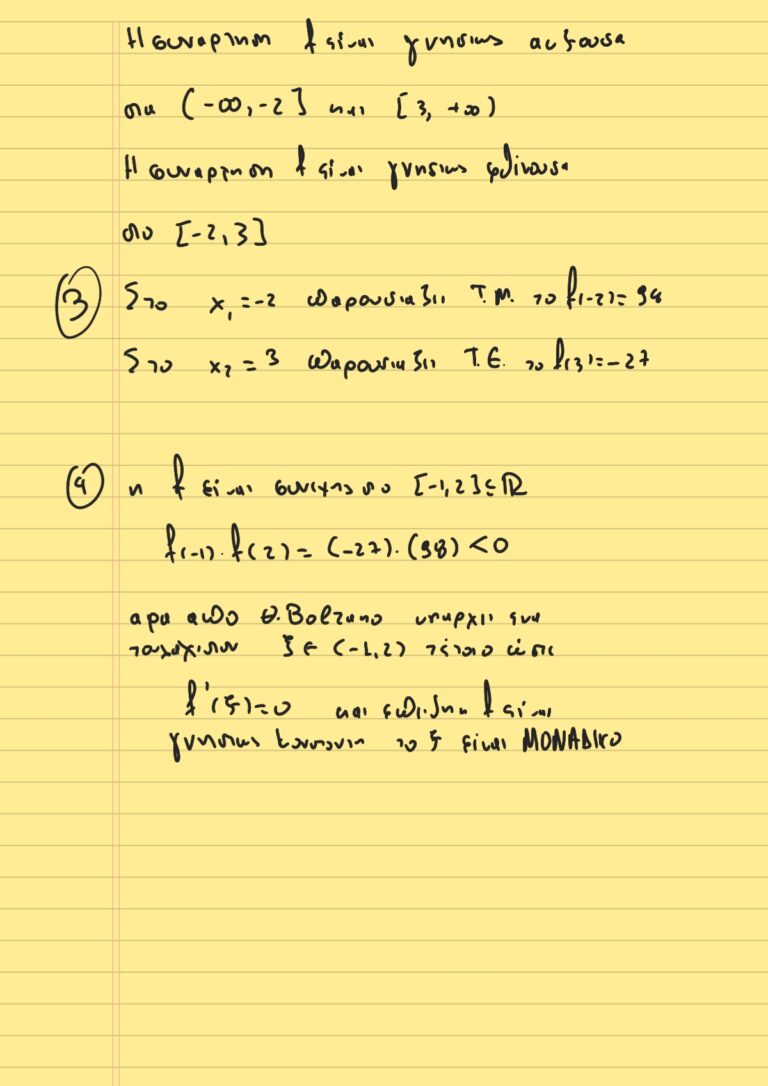 Η συναρτηση f είναι γνησιως αυξουσα
στα (-∞,-2] και [3,+∞)
Η συναρτηση f είναι γνησιως φθίνουσα
στο [-2,3]
③ Στο x₁=-2 παρουσιαζει Τ.Μ. το f(-2)=98
Στο x₂=3 παρουσιαζει Τ.Ε. το f(3)=-27
④ η f είναι συνεχης στο [-1,2]⊆ℝ
f(-1).f(2)=(-27).(98)<0
αρα απο Θ.Bolzano υπαρχει ενα
τουλαχιστον ξ∈(-1,2) τέτοιο ώστε
f'(ξ)=0 και επειδη η f είναι
γνησιως το ξ είναι ΜΟΝΑΔΙΚΟ